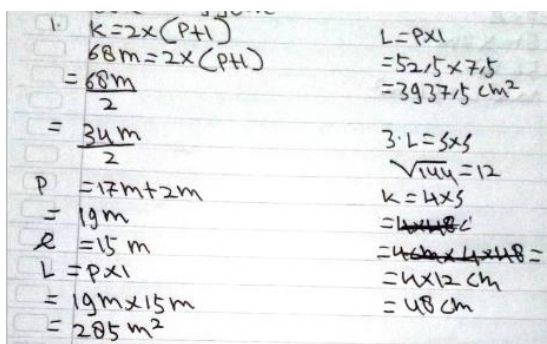 1. K=2x(P+l)
68m=2x(P+l)
= 68m
2
= 34m
2
P =17m+2m
= 19m
l =15 m
L =Pxl
= 19mx15m
= 285 m²
L=Pxl
=52,5x7,5
=3937,5 cm²
3. L=sxs
√144=12
K=4xs
=4x12 cm
=48 cm